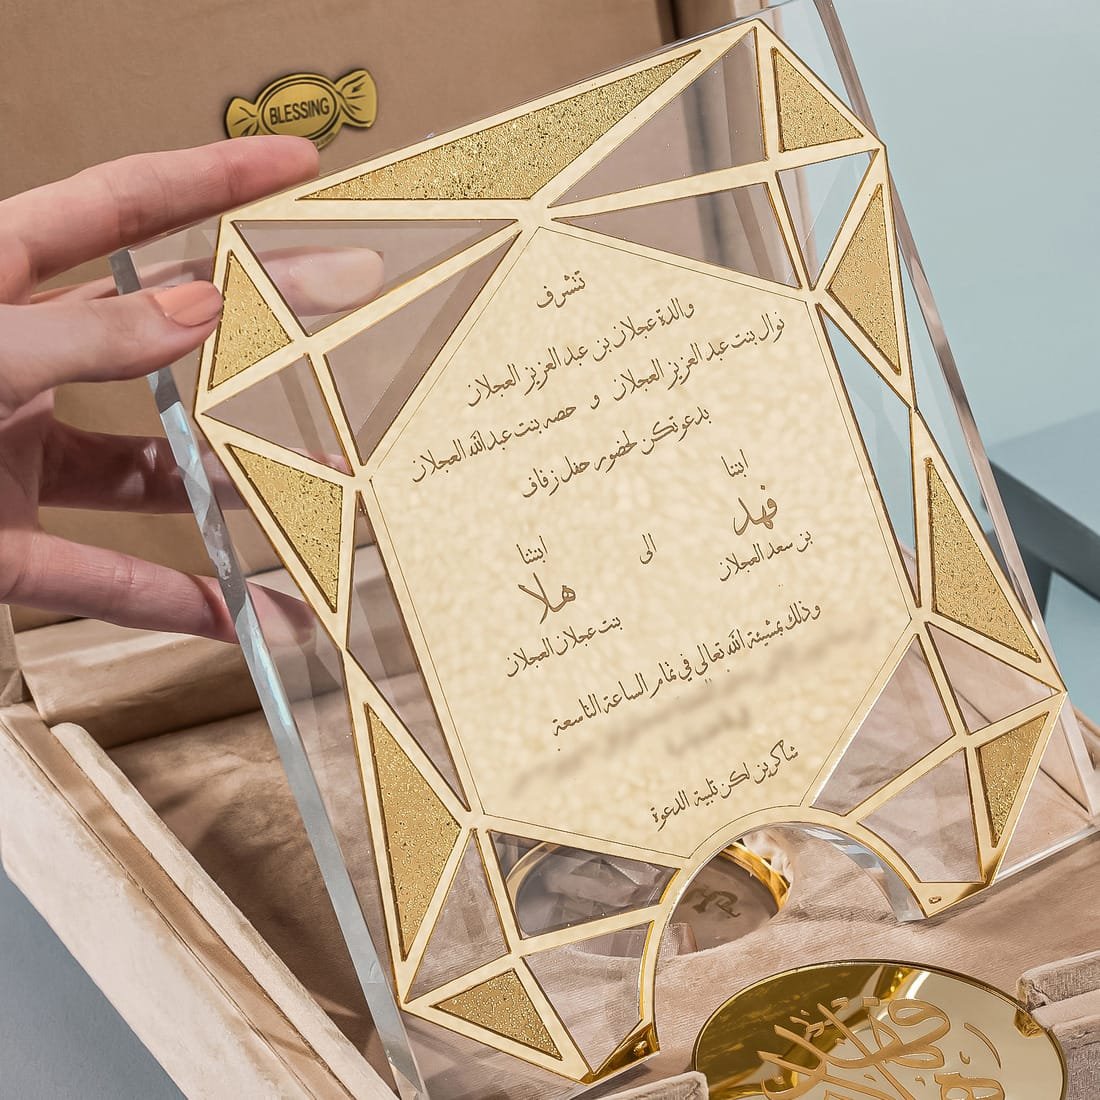 BLESSING
تتشرف
والدة عجلان بن عبد العزيز العجلان
نوال بنت عبد العزيز العجلان و حصه بنت عبدالله العجلان
بدعوتكن لحضور حفل زفاف
ابننا
فهد
بن سعد العجلان
الى
ابنتنا
هلا
بنت عجلان العجلان
وذلك بمشيئة الله تعالى في تمام الساعة التاسعة
شاكرين لكن تلبية الدعوة